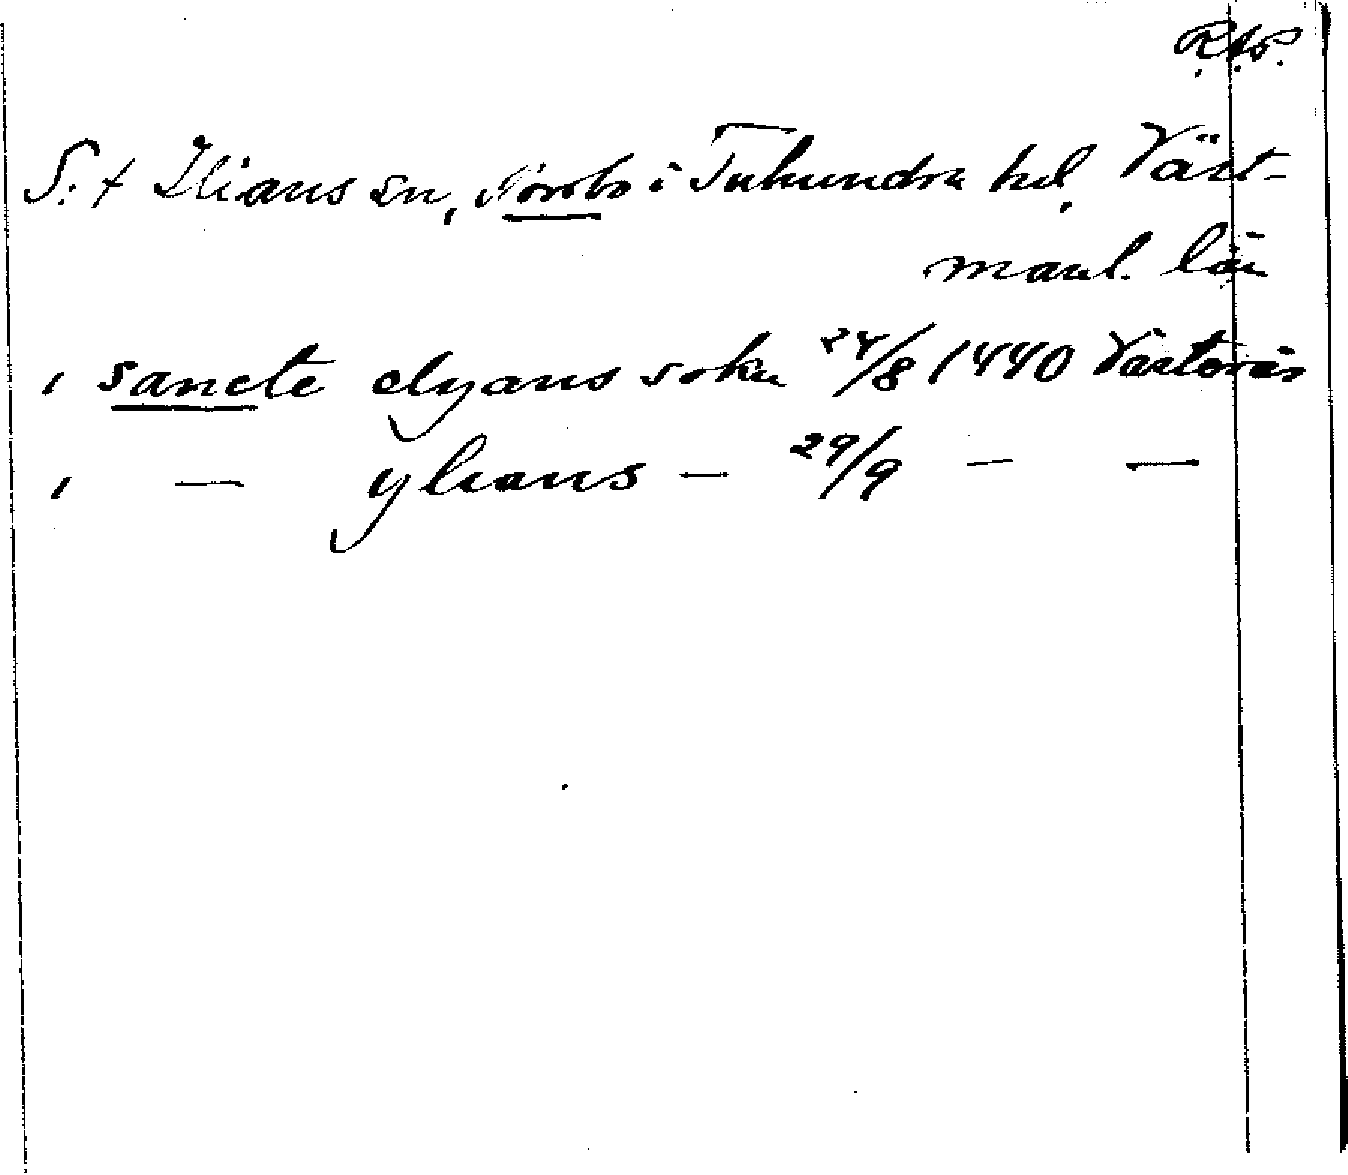 R.A.P.
S:t Ilians sn, Norrbo i Tuhundra hd, Väst-
manl. län
i sancte elyans sokn 24/8 1440 Västerås
i — ylians — 29/9 — —